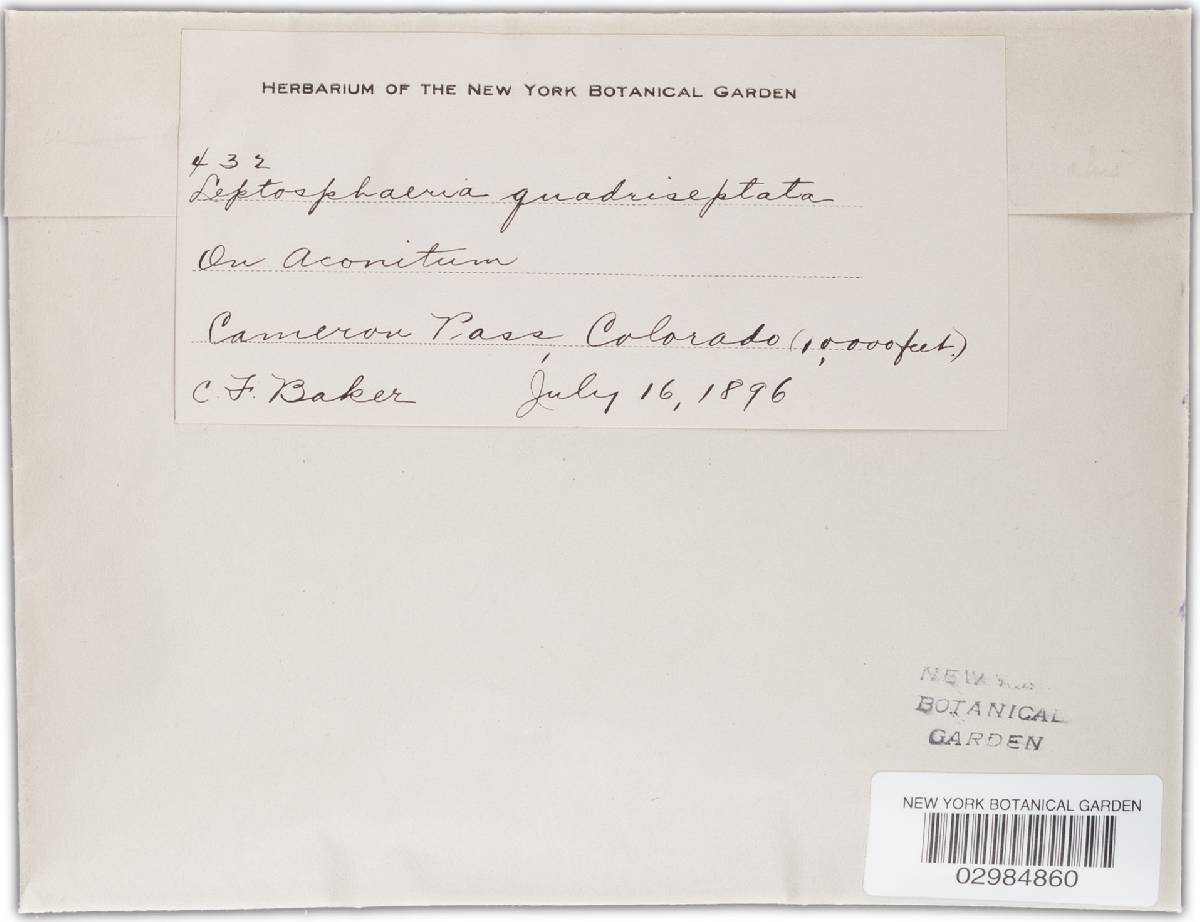 HERBARIUM OF THE NEW YORK BOTANICAL GARDEN
432
Leptosphaeria quadriseptata
On Aconitum
Cameron Pass, Colorado (10,000 feet.)
C. F. Baker July 16, 1896
NEW
BOTANICAL
GARDEN
NEW YORK BOTANICAL GARDEN
02984860